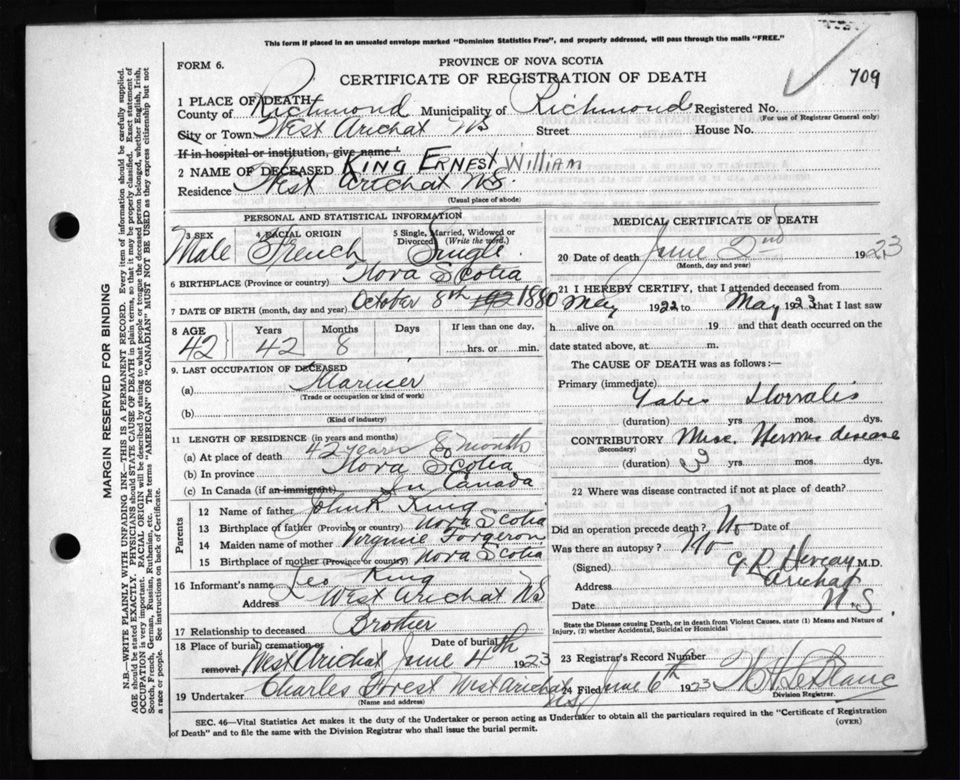 This form if placed in an unsealed envelope marked "Dominion Statistics Free", and properly addressed, will pass through the mails "FREE."
FORM 6.
PROVINCE OF NOVA SCOTIA
CERTIFICATE OF REGISTRATION OF DEATH
709
1 PLACE OF DEATH—
County of Richmond Municipality of Richmond Registered No.
(For use of Registrar General only)
City or Town West Arichat NS Street House No.
If in hospital or institution, give name
2 NAME OF DECEASED KING ERNEST William
Residence West Arichat NS.
(Usual place of abode)
PERSONAL AND STATISTICAL INFORMATION
3 SEX 4 RACIAL ORIGIN 5 Single, Married, Widowed or Divorced (Write the word.)
Male French Single
6 BIRTHPLACE (Province or country) Nova Scotia
7 DATE OF BIRTH (month, day and year) October 8th 192 1880
8 AGE Years Months Days If less than one day,
42 42 8 hrs. or min.
9. LAST OCCUPATION OF DECEASED
(a) Mariner
(Trade or occupation or kind of work)
(b)
(Kind of industry)
11 LENGTH OF RESIDENCE (in years and months)
(a) At place of death 42 years 8 month
(b) In province Nova Scotia
(c) In Canada (if an immigrant) In Canada
Parents
12 Name of father John R King
13 Birthplace of father (Province or country) Nova Scotia
14 Maiden name of mother Virginie Forgeron
15 Birthplace of mother (Province or country) Nova Scotia
16 Informant's name Leo King
Address West Arichat NS
17 Relationship to deceased Brother
18 Place of burial, cremation or removal West Arichat Date of burial June 4th 1923
19 Undertaker Charles Forest West Arichat NS.
(Name and address)
MEDICAL CERTIFICATE OF DEATH
20 Date of death June 2nd 1923
(Month, day and year)
21 I HEREBY CERTIFY, that I attended deceased from
May 1922 to May 1923 that I last saw
h alive on 19 and that death occurred on the
date stated above, at m.
The CAUSE OF DEATH was as follows:—
Primary (immediate)
Tabes
(duration) yrs mos. dys.
CONTRIBUTORY disease
(Secondary)
(duration) 3 yrs. mos. dys.
22 Where was disease contracted if not at place of death?
Did an operation precede death? No Date of
Was there an autopsy? No
(Signed) M.D.
Address Arichat
Date N.S.
State the Disease causing Death, or in death from Violent Causes, state (1) Means and Nature of
Injury, (2) whether Accidental, Suicidal or Homicidal
23 Registrar's Record Number
24 Filed June 6th 1923 LeBlanc
Division Registrar.
SEC. 46—Vital Statistics Act makes it the duty of the Undertaker or person acting as Undertaker to obtain all the particulars required in the "Certificate of Registration
of Death" and to file the same with the Division Registrar who shall issue the burial permit.
(OVER)
MARGIN RESERVED FOR BINDING
N.B.—WRITE PLAINLY WITH UNFADING INK—THIS IS A PERMANENT RECORD. Every item of information should be carefully supplied.
AGE should be stated EXACTLY. PHYSICIANS should STATE CAUSE OF DEATH in plain terms, so that it may be properly classified. Exact statement of
OCCUPATION is very important. RACIAL ORIGIN will be described by stating to what people or tongue the deceased person belonged, whether English, Irish,
Scotch, French, German, Russian, Ruthenian, etc. The terms "AMERICAN" OR "CANADIAN" MUST NOT BE USED as they express citizenship but not
a race or people. See instructions on back of Certificate.